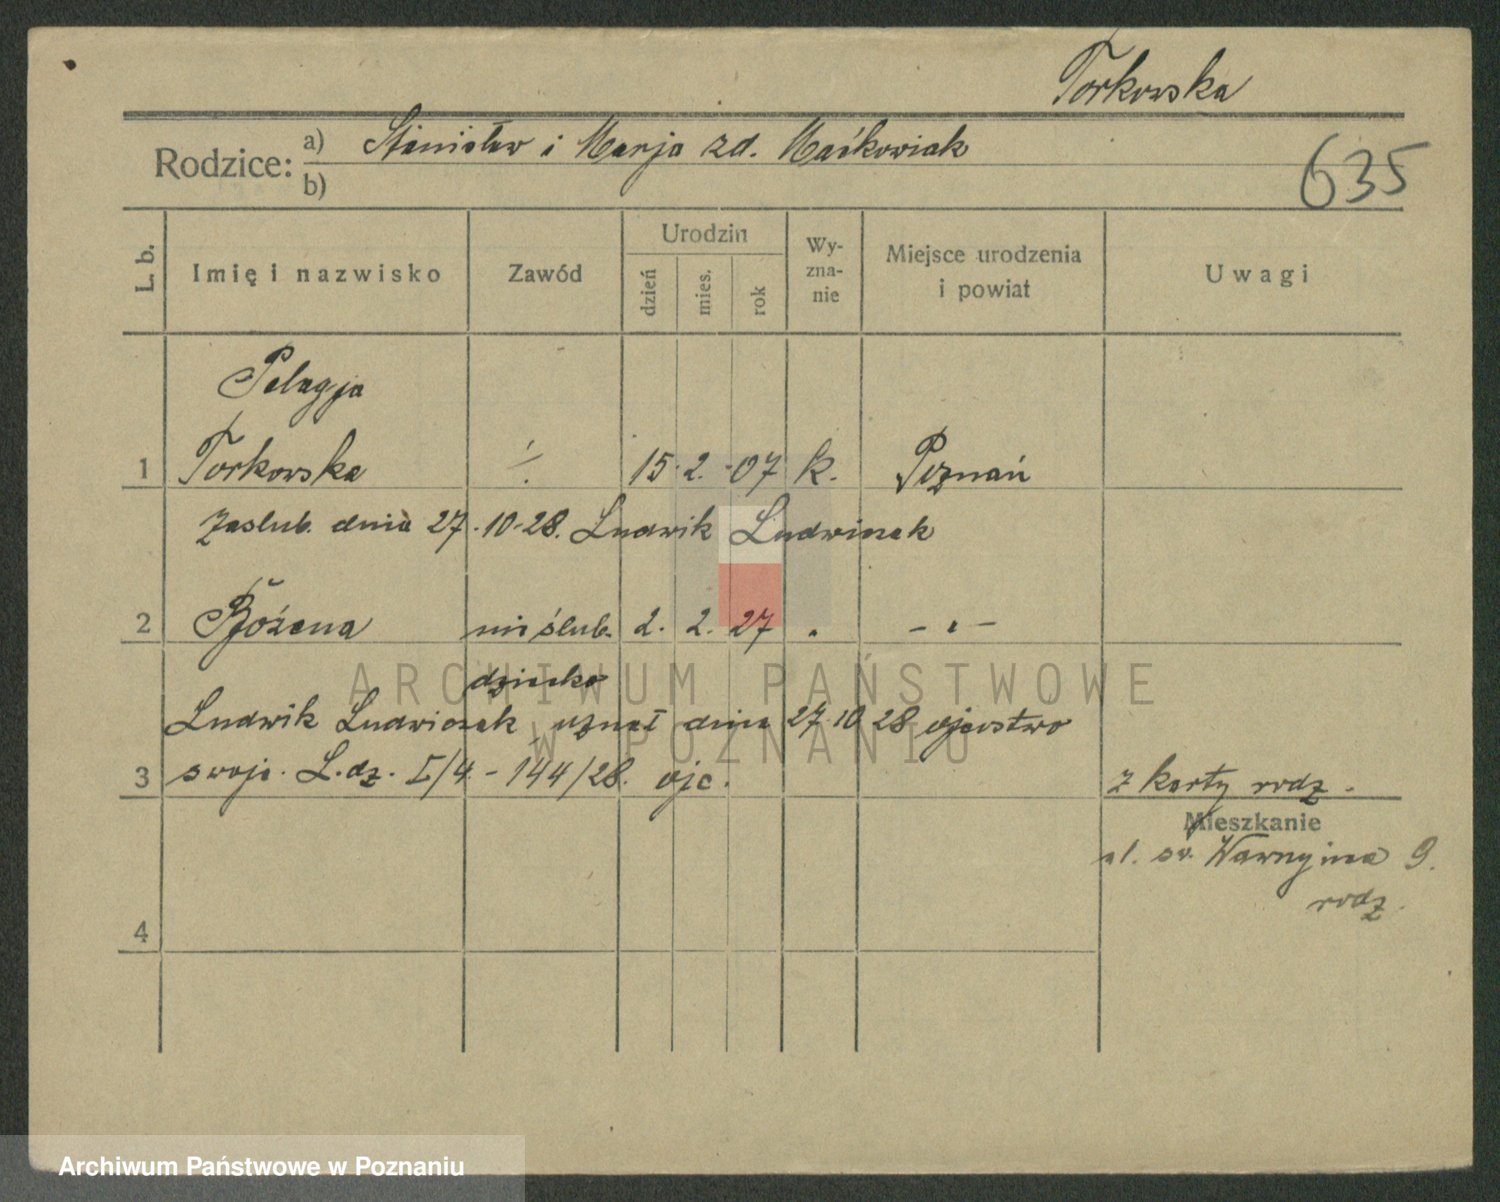 Torkowska
Rodzice: a) Stanisław i Marja zd. Maćkowiak
b)
635
L. b. Imię i nazwisko Zawód Urodzin dzień mies. rok Wyzna-nie Miejsce urodzenia i powiat Uwagi
Pelagja
1 Torkowska ./. 15. 2. 07 k. Poznań
zaślub. dnia 27.10-28. Ludwik Ludwiczak
2 Bożena nieślub. 2. 2. 27 . - „ -
dziecko
Ludwik Ludwiczak uznał dnia 27.10 28 ojcostwo
3 swoje. L.dz. I/4. - 144/28. ojc. z karty rodz.
Mieszkanie
ul. św. Wawrzyńca 9.
rodz.
4
ARCHIWUM PAŃSTWOWE
W POZNANIU
Archiwum Państwowe w Poznaniu